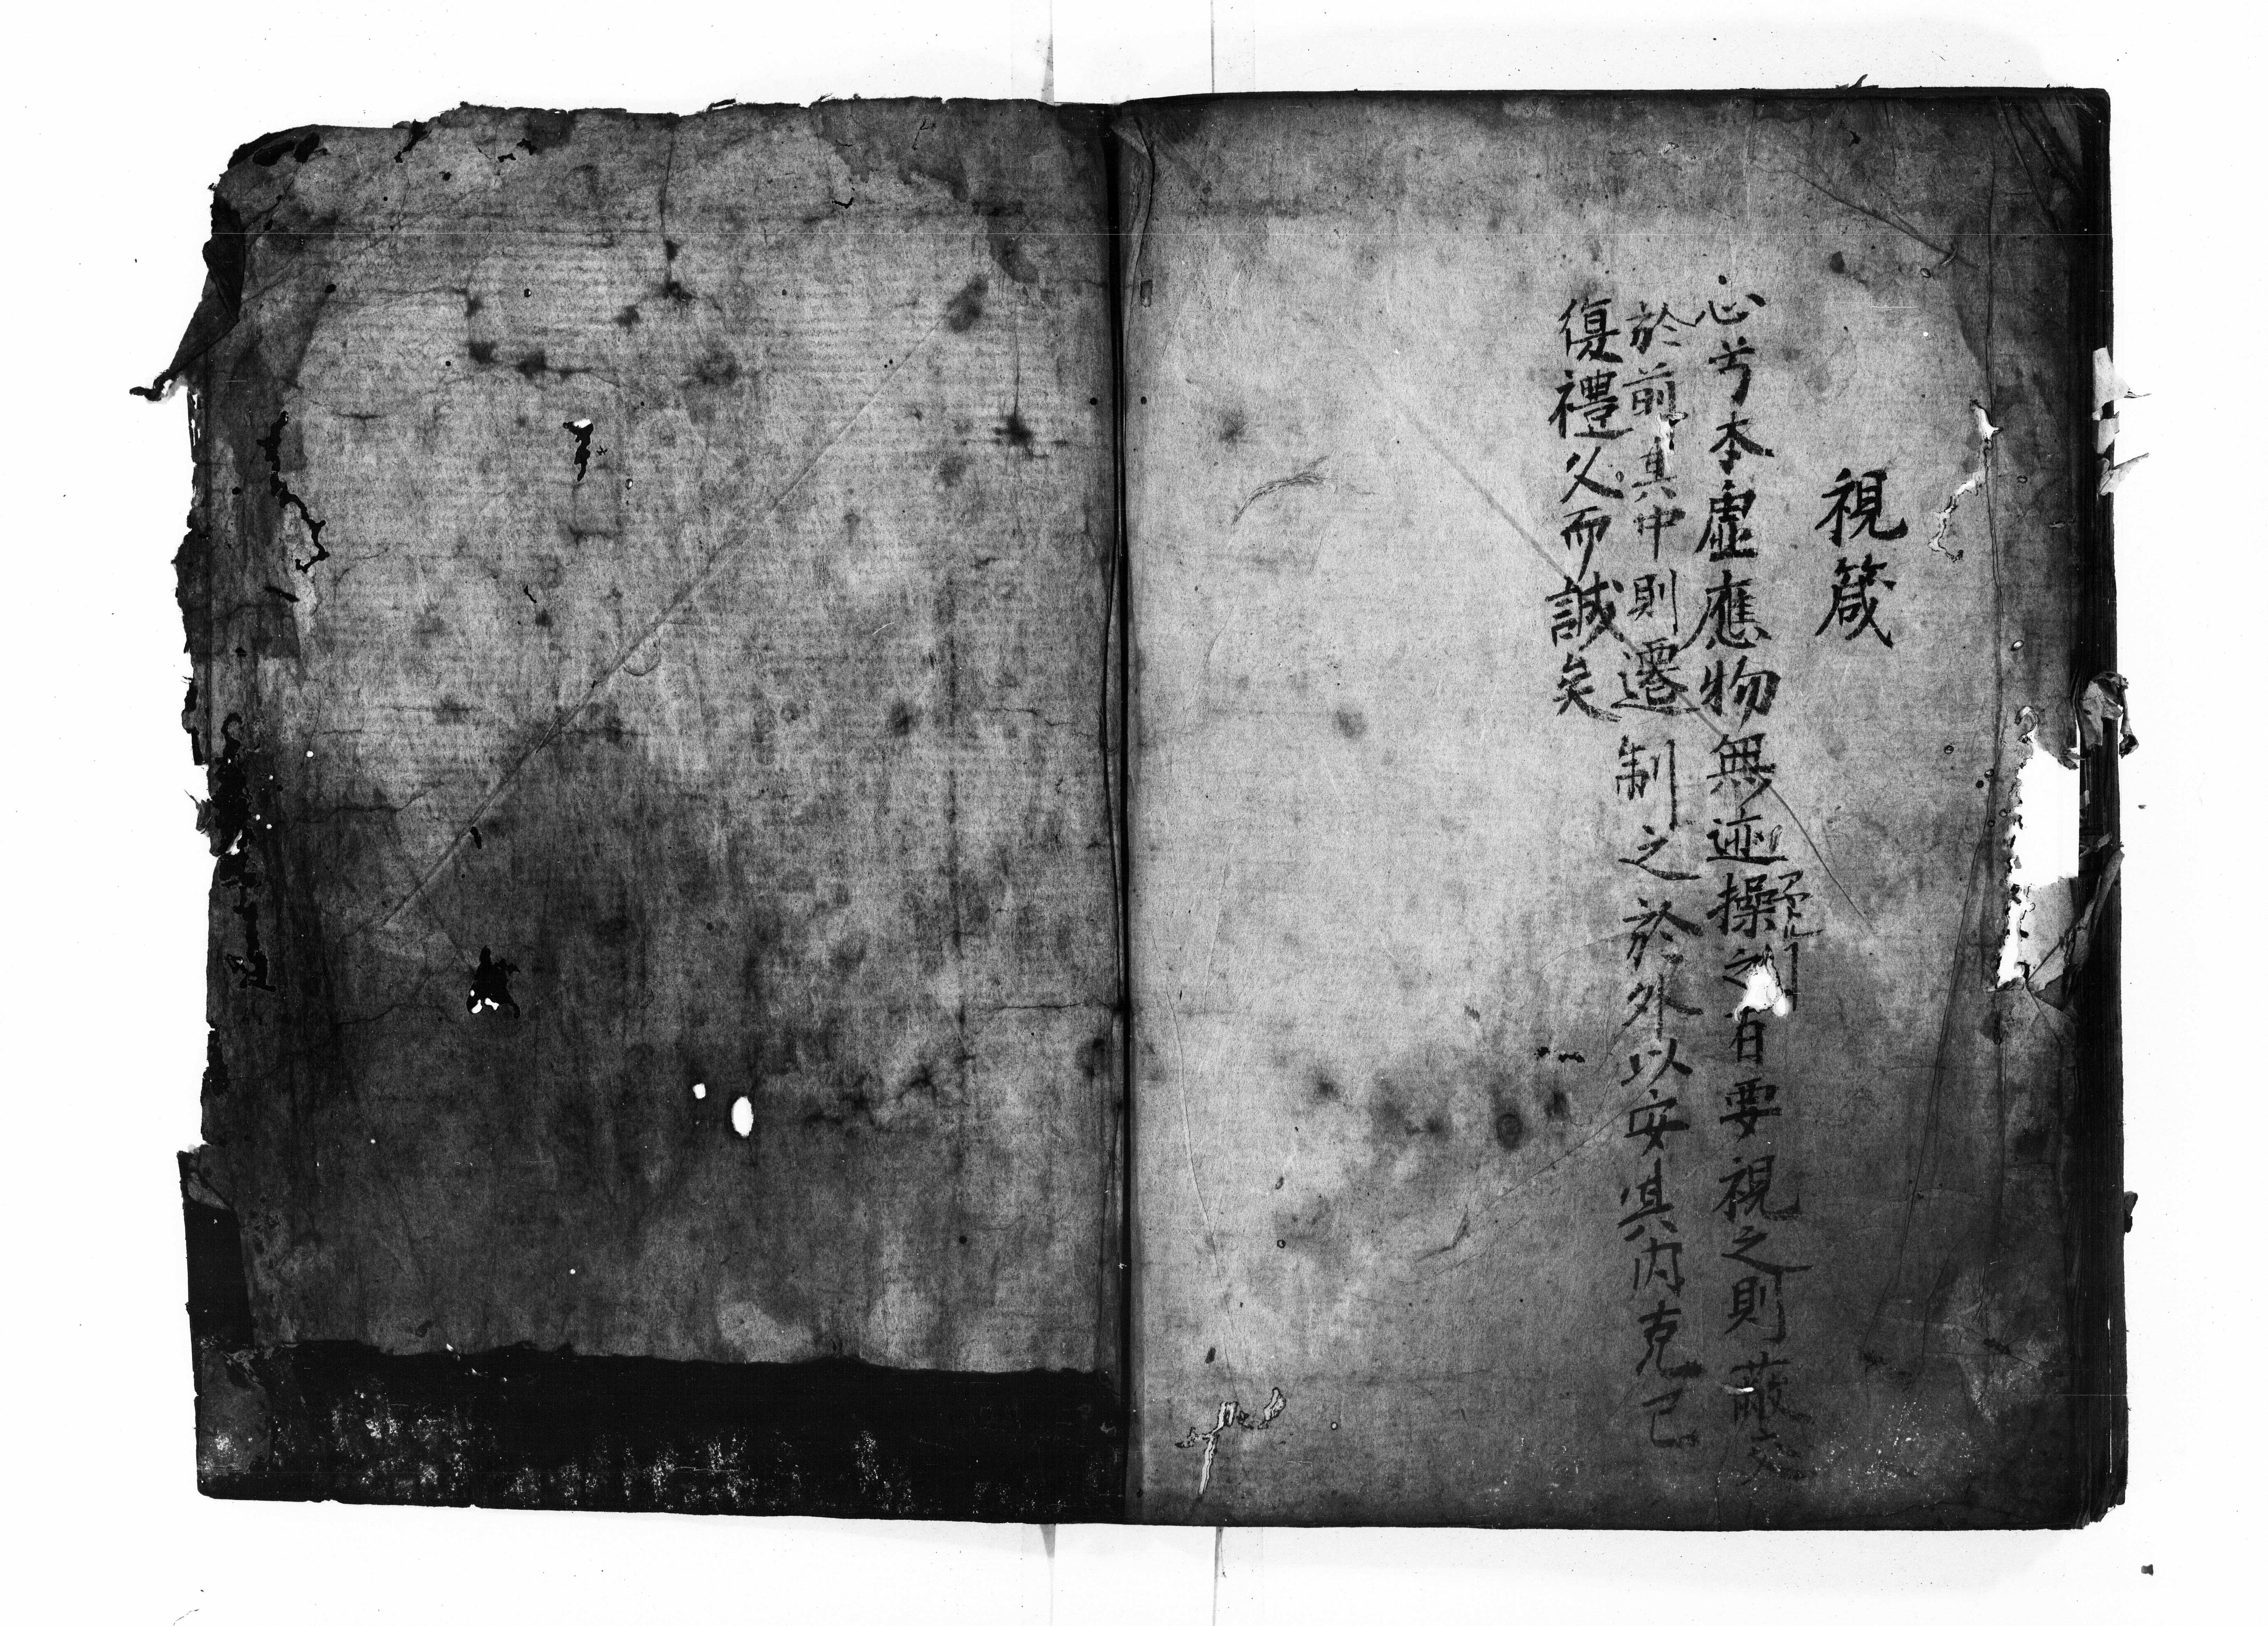 視箴
心兮本虛應物無迹操之有要視之則蔽交
於前其中則遷制之於外以安其内克己
復禮久而誠矣